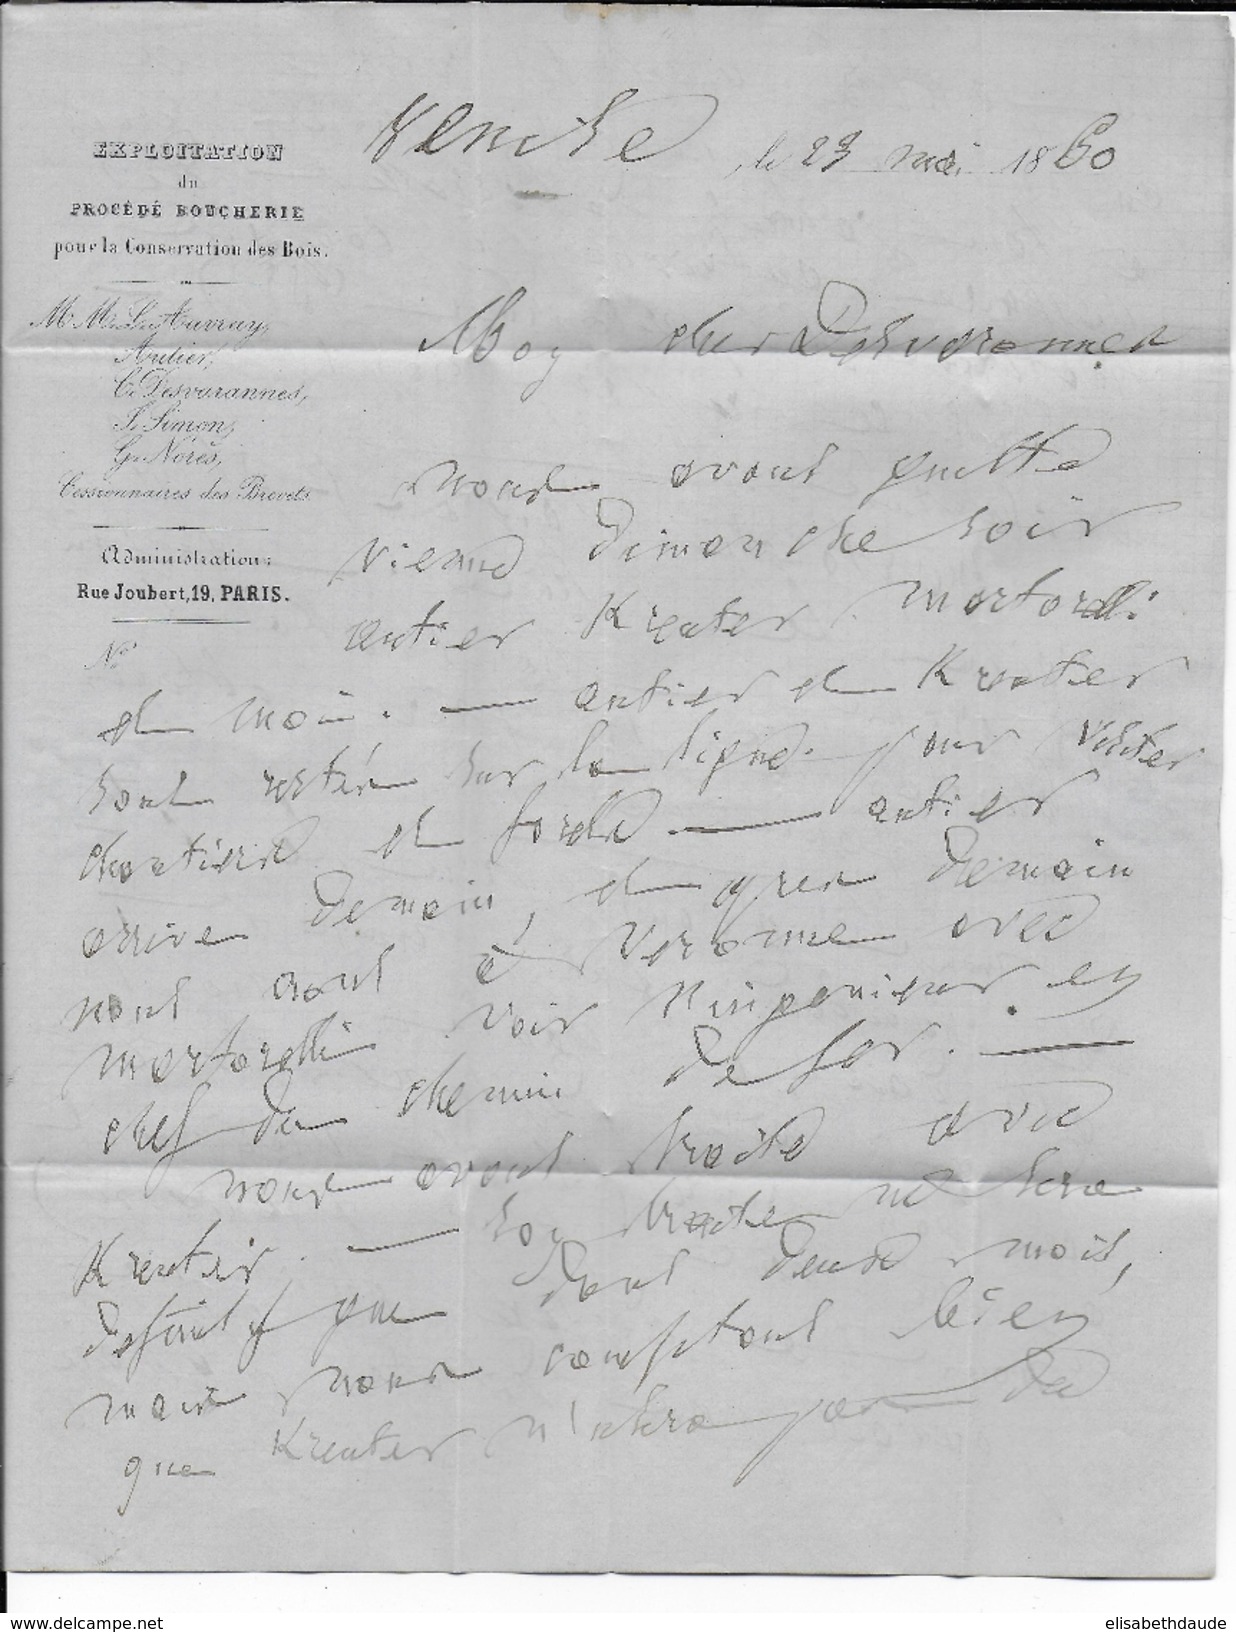 EXPLOITATION
du
PROCÉDÉ BOUCHERIE
pour la Conservation des Bois.
M.M. Le Auvray,
Autier,
C. Desvarannes,
S. Simon,
G. Norès,
Cessionnaires des Brevets
Administration:
Rue Joubert, 19, PARIS.
N°
Venise le 23 mai 1860
Mon cher Desvarannes
nous avons quitté
Vienne Dimanche soir
autier Kreuter Martorelli
et moi. — autier et Kreuter
sont restés sur la ligne pour visiter
chantiers et forêts — autier
arrive demain, et après demain
nous irons à Verone avec
Martorelli voir l'ingenieur en
chef du chemin de fer. —
nous avons traité avec
Kreuter. — son traité ne sera
définitif que dans deux mois,
mais nous comptons bien
que Kreuter n'usera pas du
elisabethdaude
www.delcampe.net